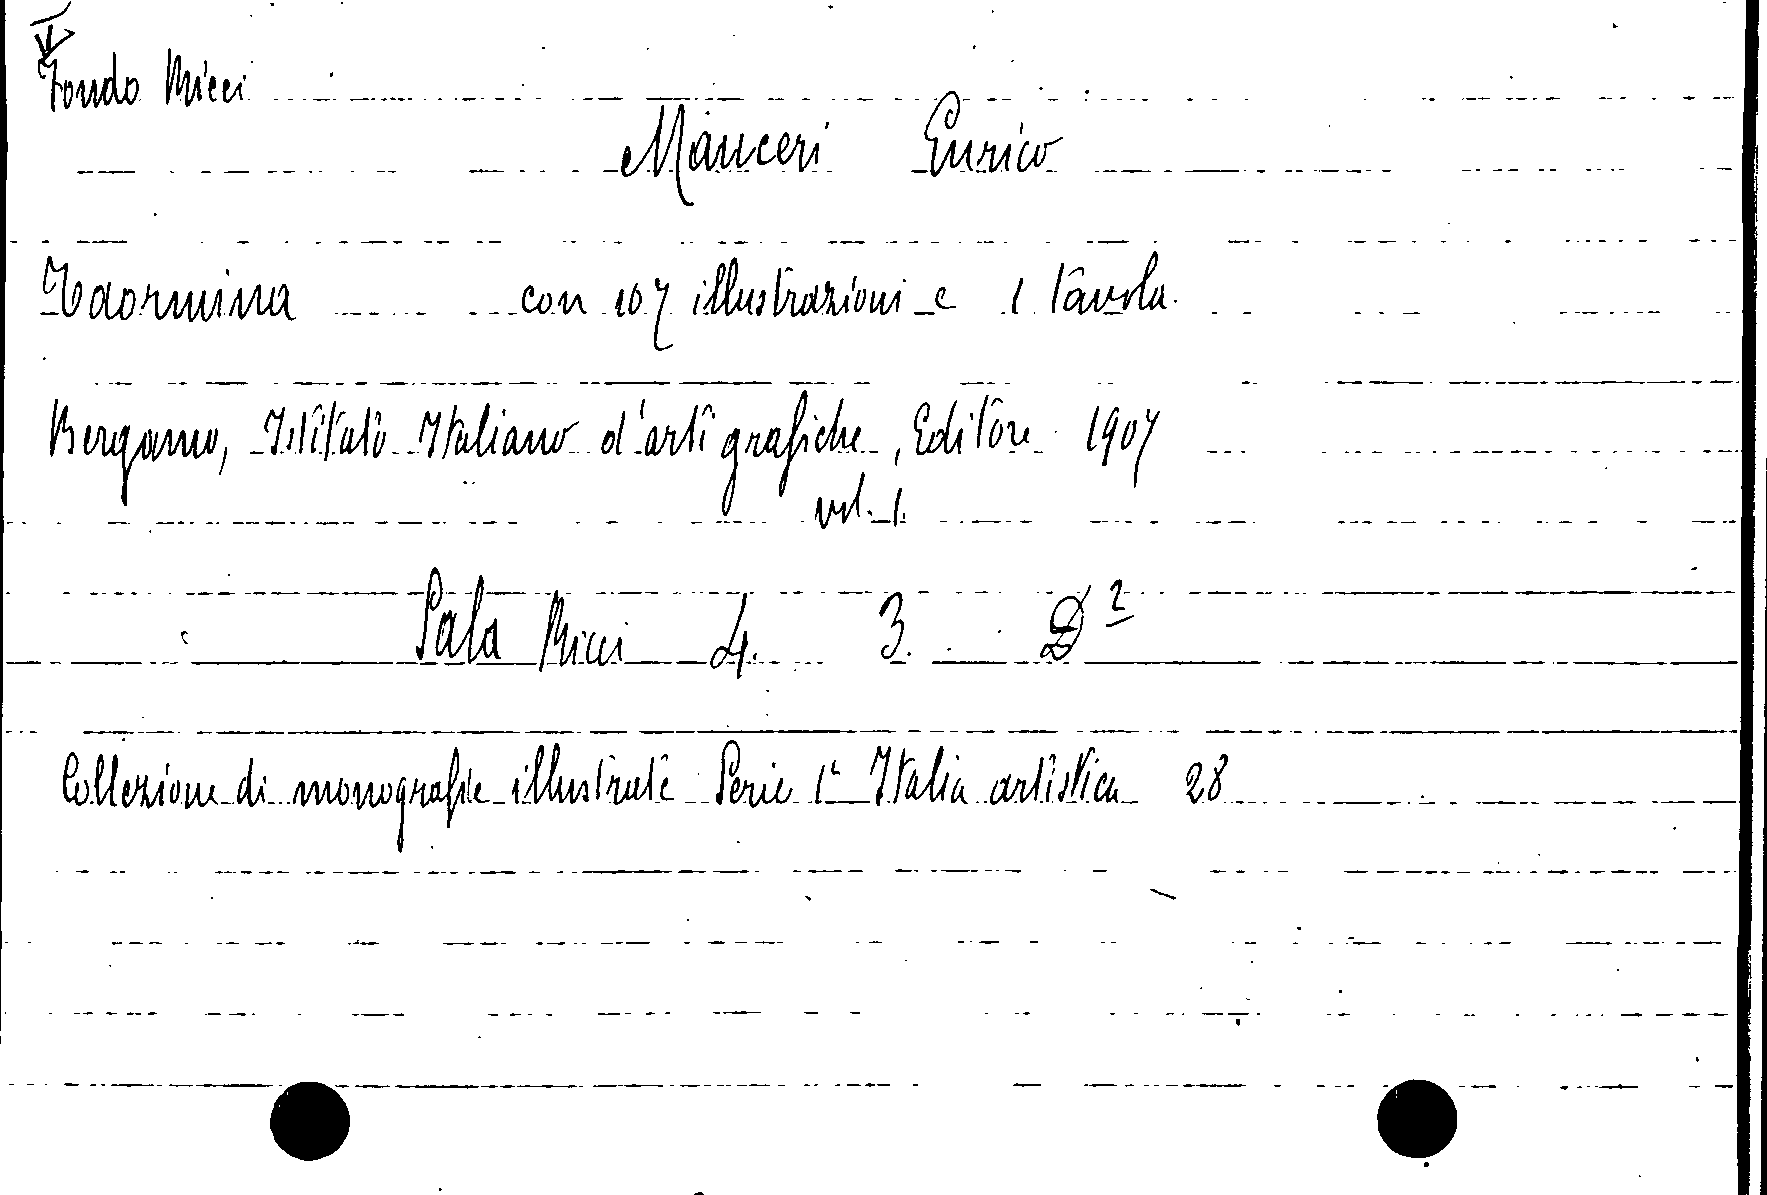 Fondo Ricci
Mauceri Enrico
Taormina con 107 illustrazioni e 1 tavola.
Bergamo, Istituto Italiano d'arti grafiche, Editore 1907
vol. 1.
Sala Ricci 4. 3. D²
Collezione di monografie illustrate Serie 1ª Italia artistica 28